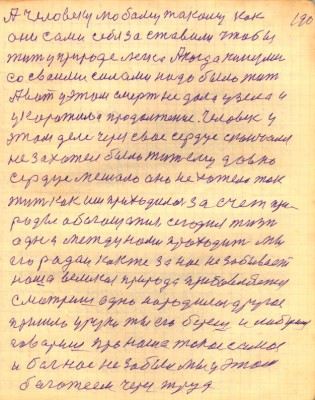 190
А человеку любому такому как
они сами себя заставили чтобы
жить у природе легко А когда кинули
со своими силами надо было жить
А вот у этом смерть не дала узела и
укоротила продолжение. Человек у
этом деле через свое сердце скончался
не захотел было жить ему давно
сердце мешало оно не хотело так
жить как им приходилось за счет при-
роды обогащаться, сегодня жизнь
одна между нами проходит мы
его рядом как же за нас не забывает
наша великая природа
смотришь одно народилось другое
пришло у руки ты его берешь и
говоришь про наше такое самое
и Бог нас не забыл мы у этом
богатеем через труд